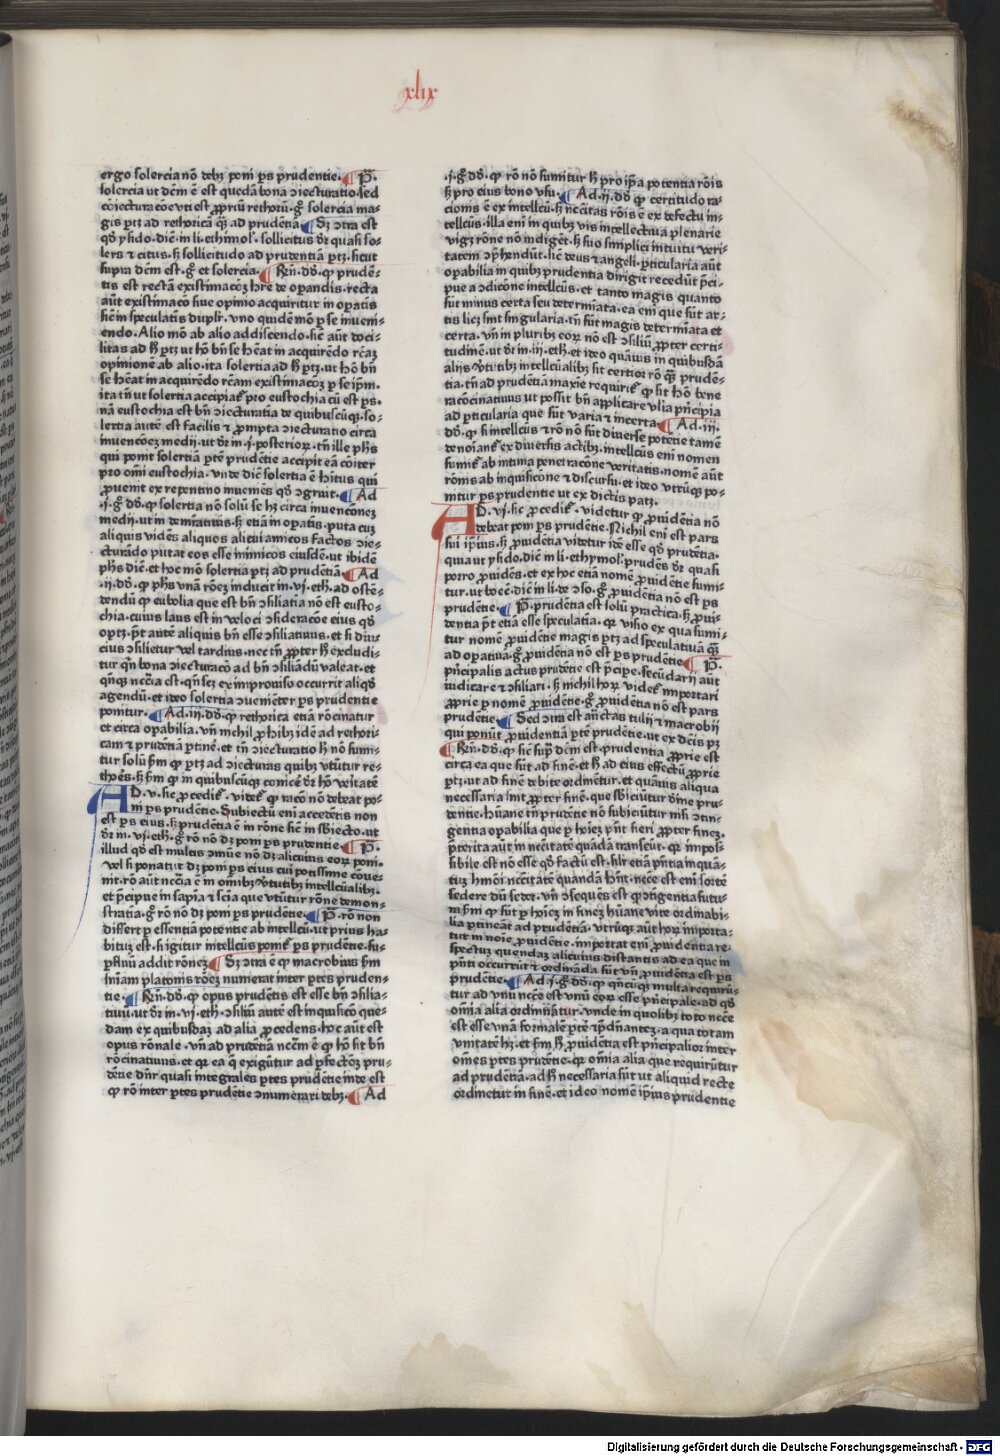 xlix
ergo solercia nō debꝫ poni ꝑs prudentie. ¶ P̄.
solercia ut dc̄m ē est quedā bona ↄiecturatio. sed
cōiecturacōe vti est ꝓpriū rethorū. gͦ solercia ma-
gis ꝑtꝫ ad rethoricā qͣꝫ ad prudentiā ¶ Sꝫ ↄtra est
qd̓ yſido. dic̄. in li. ethimol̓. sollicitus dr̄ quasi so-
lers ⁊ citus. sꝫ sollicitudo ad prudentiā ꝑtꝫ. sicut
supra dc̄m est. gͦ et solercia. ¶ Rn̄. dd̓. ꝙ prudē-
tis est rectā existimacōeꝫ hr̄e de oꝑandis. recta
aūt existimacō siue opinio acquiritur in oꝑatis
sic̄ in speculatis dupl̓r. vno quidē mō ꝑ se inueni-
endo. Alio mō ab alio addiscendo. sic̄ aūt doci-
litas ad hͦ ꝑtꝫ ut hō bn̄ se hēat in acquirēdo rc̄aꝫ
opinionē ab alio. ita solertia ad hͦ ꝑtꝫ. ut hō bn̄
se hēat in acquirēdo rc̄am existimacoꝫ ꝑ se ip̄m.
ita tn̄ ut solertia accipiat᷑ pro eustochia cū est ꝑs.
nā eustochia est bn̄ ↄiecturatia de quibuscūqꝫ. so-
lertia autē est facilis ⁊ prompta ↄiecturatio circa
inuencōeꝫ medij. ut dr̄ in .j. posterioꝝ. tn̄ ille ph̄s
qui ponit solertiā ꝑtē prudētie accipit eā cōiter
pro omī eustochia. vnde dic̄ solertia ē hītus qui
ꝓuenit ex repentino inueniēs qd̓ ↄgruit. ¶ Ad
.j. gͦ dd̓. ꝙ solertia nō solū se hꝫ circa inuencōeꝫ
medij. ut in demr̄atiuis. sꝫ etiā in oꝑatis. puta cuꝫ
aliquis vidēs aliquos alicui amicos factos ↄie-
cturādo putat eos esse inimicos eiusdē. ut ibidē
ph̄s dic̄. et hoc mō solertia ꝑtꝫ ad prudētiā. ¶ Ad
.ij. dd̓. ꝙ ph̄s vnā rōeꝫ inducit in .vj. eth̓. ad oste-
dendū ꝙ eubolia que est bn̄ ↄsiliatia nō est eusto-
chia. cuius laus est in veloci ↄsideracōe eius qd̓
oꝑtꝫ. pt̄ autē aliquis bn̄ esse ↄsiliatiuus. et si diu-
cius ↄsilietur vel tardius. nec tn̄ ꝓpter hͦ excludi-
tur qn̄ bona ↄiecturacō ad bn̄ ↄsiliādū valeat. et
qn̄qꝫ nc̄cīa est. qn̄ scꝫ ex improuiso occurrit aliqd̓
agendū. et ideo solertia ↄueniēter ꝑs prudentie
ponitur. ¶ Ad .iij. dd̓. ꝙ rethorica etiā rōcinatur
et circa oꝑabilia. vn̄ nichil ꝓhibꝫ idē ad rethori-
cam ⁊ prudētiā ꝑtinē. et tn̄ ↄiecturatio hͦ nō sumi-
tur solū fm̄ ꝙ ptꝫ ad ↄiecturas quibꝫ vtūtur re-
thoēs. sꝫ fm̄ ꝙ in quibuscūqꝫ cōiicē dr̄ hō vītatē
AD .v. sic ꝓcedit᷑. videt᷑ ꝙ racō nō debeat po-
ni ꝑs prudētie. Subiectū enī accedētis non
est ꝑs eius. sꝫ prudētia ē in rōne sic̄ in sb̄iecto. ut
dr̄ in .vj. eth̓. gͦ rō nō dꝫ poni ꝑs prudentie. ¶ P̄.
illud qd̓ est multis ↄmūe nō dꝫ alicuius eoꝝ poni.
vel si ponatur dꝫ poni ꝑs eius cui potissime cōue-
nit. rō aūt nc̄cīa ē in omībꝫ v̓tutibꝫ intellcūalibꝫ.
et p̄cipue in sapīa ⁊ scīa que vtūtur rōne demon-
stratia. gͦ rō nō dꝫ poni ꝑs prudētie. ¶ P̄. rō non
differt ꝑ essentiā potentie ab intellcū. ut prius ha-
bituꝫ est. si igitur intellcūs ponit᷑ ꝑs prudētie. su-
ꝑfluū addit rōneꝫ ¶ Sꝫ ↄtra ē ꝙ macrobius fm̄
sniam platonis rōeꝫ numerat inter ꝑtes pruden-
tie. ¶ Rn̄. dd̓. ꝙ opus prudētis est esse bn̄ ↄsilia-
tiuū. ut dr̄ in .vj. eth̓. ↄsiliū autē est inquisicō que-
dam ex quibusdaꝫ ad alia ꝓcedens. hoc aūt est
opus rōnale. vn̄ ad prudētiā nc̄cm̄ ē ꝙ hō sit bn̄
rōcinatiuus. et qꝛ ea q̄ exigūtur ad ꝑfectōeꝫ pru-
dētie dn̄r quasi integrales ꝑtes prudētie inde est
ꝙ rō inter ꝑtes prudētie ↄnumerari debꝫ. ¶ Ad
.j. gͦ dd̓. ꝙ rō nō sumitur hͦ pro ip̄a potentia rōis
sꝫ pro eius bono vsu. ¶ Ad .ij. dd̓. ꝙ certitudo ra-
cionis ē ex intellcū. sꝫ nc̄citas rōis ē ex defectu in-
tellcūs. illa enī in quibꝫ vis intellectiua plenarie
vigꝫ rōne nō indigēt. sꝫ suo simplici intuitu veri-
tatem ↄp̄hendūt. sic deus ⁊ angeli. ꝑticularia aūt
oꝑabilia in quibꝫ prudentia dirigit recedūt p̄ci-
pue a ↄdicōne intellcūs. et tanto magis quanto
sūt minus certa seu determīata. ea enī que sūt ar-
tis licꝫ sint singularia. tn̄ sūt magis determīata et
certa. vn̄ in pluribꝫ eoꝝ nō est ↄsiliū ꝓpter certi-
tudinē. ut dr̄ in .iij. eth̓. et ideo quāuis in quibusdā
alijs v̓tutibꝫ intellcūalibꝫ sit certior rō qͣꝫ prudē-
tia. tn̄ ad prudētiā maxie requirit᷑ ꝙ sit hō bene
racōcinatiuus ut possit bn̄ applicare vlīa prīcipia
ad ꝑticularia que sūt varia ⁊ incerta. ¶ Ad .iij.
dd̓. ꝙ si intellcūs ⁊ rō nō sūt diuerse potētie tamē
denoīant᷑ ex diuersis actibꝫ. intellcūs enī nomen
sumit᷑ ab intima penetracōne veritatis. nomē aūt
rōnis ab inquisicōne ⁊ discursu. et ideo vtrūqꝫ po-
nitur ꝑs prudentie ut ex dictis patꝫ.
AD .vj. sic ꝓcedit᷑. videtur ꝙ ꝓuidētia nō
debeat poni ꝑs prudētie. Nichil enī est pars
sui ip̄ius. sꝫ ꝓuidētia videtur idē esse qd̓ prudētia.
quia ut yſido. dic̄ in li. ethymol̓. prudēs dr̄ quasi
porro ꝓuidēs. et ex hoc etiā nomē ꝓuidētie sumi-
tur. ut boec̄. dic̄ in li. de ↄso. gͦ ꝓuidētia nō est ꝑs
prudētie. ¶ P̄. prudētia est solū practica. sꝫ ꝓui-
dentia pt̄ etiā esse speculatia. qꝛ visio ex qua sumi-
tur nomē ꝓuidētie magis ꝑtꝫ ad speculatiuā qͣꝫ
ad oꝑatiuā. gͦ ꝓuidētia nō est ꝑs prudētie ¶ P̄.
pn̄cipalis actus prudētie est p̄cipe. secūdarij aūt
iudicare ⁊ ↄsiliari. sꝫ nichil hoꝝ videt᷑ importari
ꝓprie ꝑ nomē ꝓuidētie. gͦ ꝓuidētia nō est pars
prudētie ¶ Sed ↄtra est auc̄tas tulij ⁊ macrobij
qui ponūt ꝓuidentiā ꝑtē prudētie. ut ex dc̄is pꝫ
¶ Rn̄. dd̓. ꝙ sic̄ supͣ dc̄m est. prudentia ꝓprie est
circa ea que sūt ad finē. et hͦ ad eius effectū ꝓprie
ꝑtꝫ. ut ad finē debite ordinētur. et quāuis aliqua
necessaria sint ꝓpter finē. que sb̄iciūtur diuīe pru-
dentie. hūane tn̄ prudētie nō subiciūtur nisi ↄtin-
gentia oꝑabilia que ꝑ hoīeꝫ pn̄t fieri ꝓpter fineꝫ.
p̄terita aūt in nc̄citatē quādā transeūt. qꝛ impos-
sibile est nō esse qd̓ factū est. sil̓r etiā pn̄tia inquā-
tuꝫ hmōi nc̄citatē quandā hn̄t. nc̄cē est enī sortē
sedere dū sedet. vn̄ ↄsequēs est ꝙ ↄtīgentia futu-
ra fm̄ ꝙ sūt ꝑ hoīeꝫ in fineꝫ hūane vite ordinabi-
lia ꝑtineāt ad prudētiā. vtrūqꝫ aūt hoꝝ importa-
tur in noīe ꝓuidētie. importat enī ꝓuidentia re-
spectuꝫ quendaꝫ alicuius distantis ad ea que in
pn̄ti occurrūt ⁊ ordināda sūt vn̄ ꝓuidētia est ꝑs
prudētie. ¶ Ad .j. gͦ dd̓. ꝙ qn̄cūqꝫ multa requirū-
tur ad vnū nc̄cē est vnū eoꝝ esse pn̄cipale. ad qd̓
omīa alia ordinātur. vnde in quolibꝫ toto nc̄cē
est esse vnā formalē ꝑtē ⁊ p̄dn̄anteꝫ. a qua totam
vnitatē hꝫ. et fm̄ hͦ ꝓuidētia est pn̄cipalior inter
om̄es ꝑtes prudētie. qꝛ omīa alia que requirūtur
ad prudētiā. ad hͦ necessaria sūt ut aliquid recte
ordinetur in finē. et ideo nomē ip̄ius prudentie
Digitalisierung gefördert durch die Deutsche Forschungsgemeinschaft - DFG